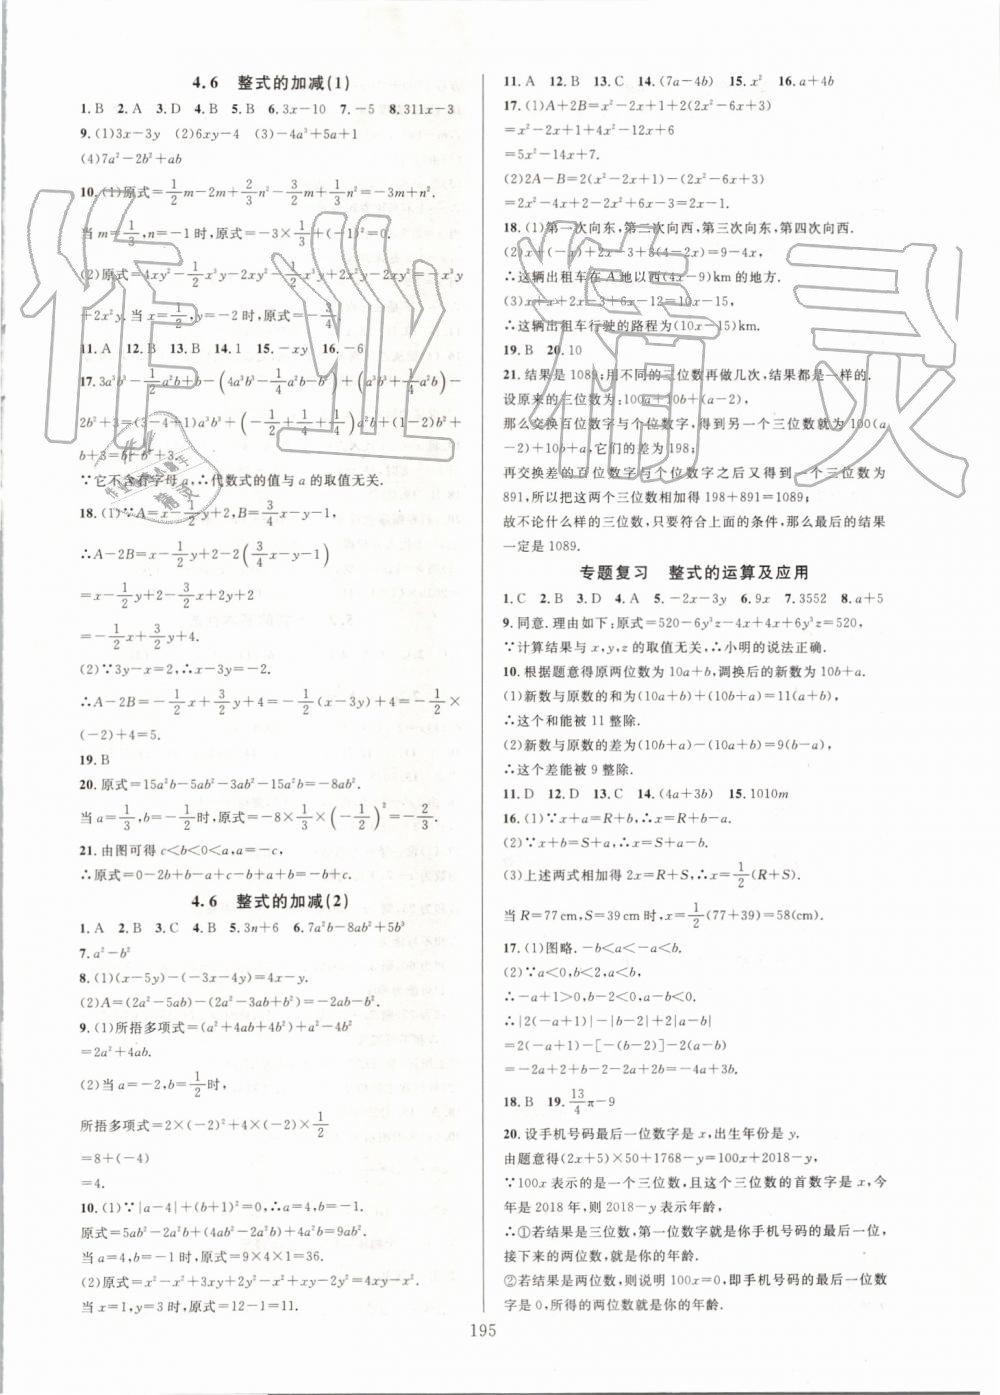 4.6 整式的加减(1)
1.B 2.A 3.D 4.B 5.B 6.3x-10 7.-5 8.311x-3
9.(1)3x-3y (2)6xy-4 (3)-4a³+5a+1
(4)7a²-2b²+ab
10.(1)原式=1/2m-2m+2/3n²-3/2m+1/3n²=-3m+n².
当m=1/3,n=-1时,原式=-3×1/3+(-1)²=0.
(2)原式=4xy²-x²y-2xy²-2xy²
+2x²y.当x=1/2,y=-2时,原式=-3/4.
11.A 12.B 13.B 14.1 15.-xy 16.-6
17.3a³b³-1/2a²b+b-(4a³b³-1/4a²b-b²)+(a³b³+1/4a²b)-
2b²+3=(3-4+1)a³b³+(-1/2+1/4+1/4)a²b+(1-2)b²+
b+3=b-b²+3.
∵它不含有字母a,∴代数式的值与a的取值无关.
18.(1)∵A=x-1/2y+2,B=3/4x-y-1,
∴A-2B=x-1/2y+2-2(3/4x-y-1)
=x-1/2y+2-3/2x+2y+2
=-1/2x+3/2y+4.
(2)∵3y-x=2,∴x-3y=-2,
∴A-2B=-1/2x+3/2y+4=-1/2(x-3y)+4=-1/2×
(-2)+4=5.
19.B
20.原式=15a²b-5ab²-3ab²-15a²b=-8ab².
当a=1/3,b=-1/2时,原式=-8×1/3×(-1/2)²=-2/3.
21.由图可得c<b<0<a,a=-c,
∴原式=0-2b+a+c+b=-b+a+c=-b+0=-b.
4.6 整式的加减(2)
1.A 2.B 3.C 4.B 5.3n+6 6.7a²b-8ab²+5b³
7.a²-b²
8.(1)(x-5y)-(-3x-4y)=4x-y.
(2)A=(2a²-5ab)-(2a²-3ab+b²)=-2ab-b².
9.(1)所捂多项式=(a²+4ab+4b²)+a²-4b²
=2a²+4ab.
(2)当a=-2,b=1/2时,
所捂多项式=2×(-2)²+4×(-2)×1/2
=8+(-4)
=4.
10.(1)∵|a-4|+(b+1)²=0,∴a=4,b=-1.
原式=5ab²-2a²b+(4ab²-2a²b)+4a²b=9ab².
当a=4,b=-1时,原式=9×4×1=36.
(2)原式=x²-x²+3xy+2y²+x²-xy-2y²=2xy+x².
当x=1,y=3时,原式=12-1=11.
11.A 12.B 13.C 14.(7a-4b) 15.x² 16.a+4b
17.(1)A+2B=x²-2x+1+2(2x²-6x+3)
=x²-2x+1+4x²-12x+6
=5x²-14x+7.
(2)2A-B=2(x²-2x+1)-(2x²-6x+3)
=2x²-4x+2-2x²+6x-3=2x-1.
18.(1)第一次向东,第二次向西,第三次向东,第四次向西.
∴这辆出租车在A地以西(4x-9)km的地方.
(3)x+x+2+x-3+6x-12=10x-15,
∴这辆出租车行驶的路程为(10x-15)km.
19.B 20.10
21.结果是1089;用不同的三位数再做几次,结果都是一样的.
设原来的三位数为:100a+10b+(a-2),
那么交换百位数字与个位数字,得到一个三位数为100(a
-2)+10b+a,它们的差为198;
再交换差的百位数字与个位数字之后又得到一个三位数为
891,所以把这两个三位数相加得198+891=1089;
故不论什么样的三位数,只要符合上面的条件,那么最后的结果
一定是1089.
专题复习 整式的运算及应用
1.C 2.B 3.D 4.A 5.-2x-3y 6.9x 7.3552 8.a+5
9.同意.理由如下:原式=520-6y³z-4x+4x+6y³z=520,
∵计算结果与x,y,z的取值无关,∴小明的说法正确.
10.根据题意得原两位数为10a+b,调换后的新数为10b+a.
(1)新数与原数的和为(10a+b)+(10b+a)=11(a+b),
∴这个和能被11整除.
(2)新数与原数的差为(10b+a)-(10a+b)=9(b-a),
∴这个差能被9整除.
11.D 12.D 13.C 14.(4a+3b) 15.1010m
16.(1)∵x+a=R+b,∴x=R+b-a.
(2)∵x+b=S+a,∴x=S+a-b.
(3)上述两式相加得2x=R+S,∴x=1/2(R+S),
当R=77cm,S=39cm时,x=1/2(77+39)=58(cm).
17.(1)图略.-b<a<-a<b.
(2)∵a<0,b<2,a-b<0,
∴-a+1>0,b-2<0,a-b<0.
∴|2(-a+1)|-|b-2|+2|a-b|
=2(-a+1)-[-(b-2)]-2(a-b)
=-2a+2+b-2-2a+2b=-4a+3b.
18.B 19.13/4π-9
20.设手机号码最后一位数字是x,出生年份是y.
由题意得(2x+5)×50+1768-y=100x+2018-y,
∵100x表示的是一个三位数,且这个三位数的首数字是x,今
年是2018年,则2018-y表示年龄,
∴①若结果是三位数,第一位数字就是你手机号码的最后一位,
接下来的两位数,就是你的年龄.
②若结果是两位数,则说明100x=0,即手机号码的最后一位数
字是0,所得的两位数就是你的年龄.
195
作业精灵